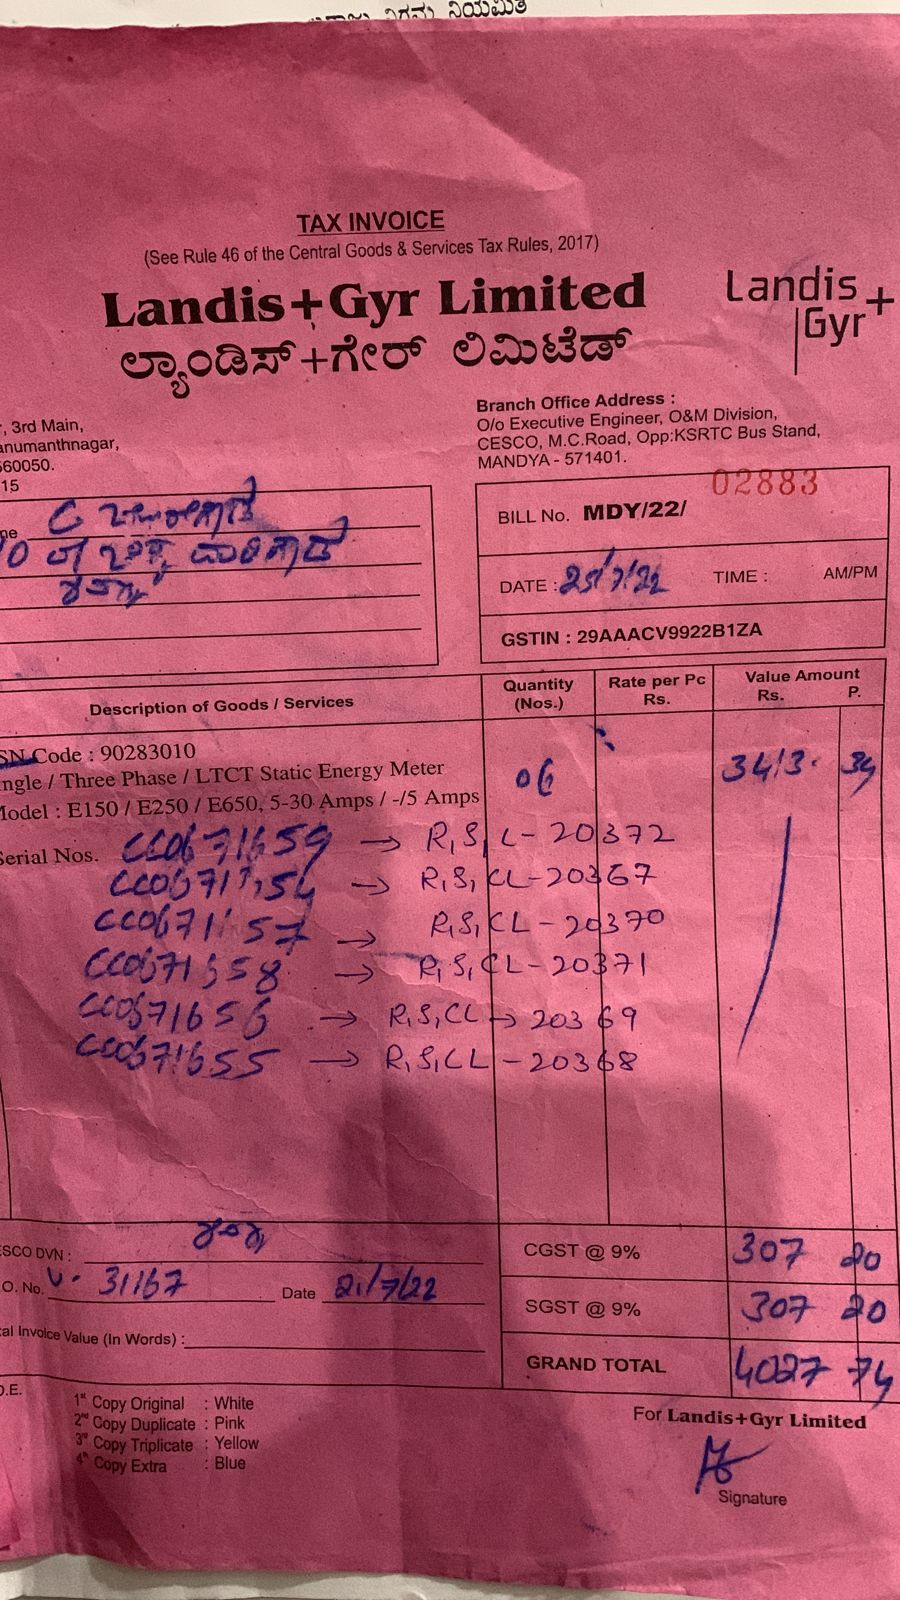 ನಿಗಮ ನಿಯಮಿತ
TAX INVOICE
(See Rule 46 of the Central Goods & Services Tax Rules, 2017)
Landis+Gyr Limited
ಲ್ಯಾಂಡಿಸ್+ಗೇರ್ ಲಿಮಿಟೆಡ್
Landis
Gyr+
, 3rd Main,
anumanthnagar,
560050.
15
Branch Office Address :
O/o Executive Engineer, O&M Division,
CESCO, M.C.Road, Opp:KSRTC Bus Stand,
MANDYA - 571401.
BILL No. MDY/22/ 02883
DATE : 25/7/22 TIME : AM/PM
GSTIN : 29AAACV9922B1ZA
Description of Goods / Services Quantity (Nos.) Rate per Pc Rs. Value Amount Rs. P.
SN Code : 90283010
ngle / Three Phase / LTCT Static Energy Meter 06 3413. 34
Model : E150 / E250 / E650, 5-30 Amps / -/5 Amps
Serial Nos. CC0671659 → R,S,L-20372
→ R,S,CL-20367
→ R,S,CL-20370
CC0671658 → R,S,CL-20371
CC0671656 → R,S,CL→20369
CC0671655 → R,S,CL-20368
ESCO DVN :
.O. No. 31167 Date 21/7/22
tal Invoice Value (In Words) :
CGST @ 9% 307 20
SGST @ 9% 307 20
GRAND TOTAL 4027 74
O.E.
1st Copy Original : White
2nd Copy Duplicate : Pink
3rd Copy Triplicate : Yellow
4th Copy Extra : Blue
For Landis+Gyr Limited
Signature